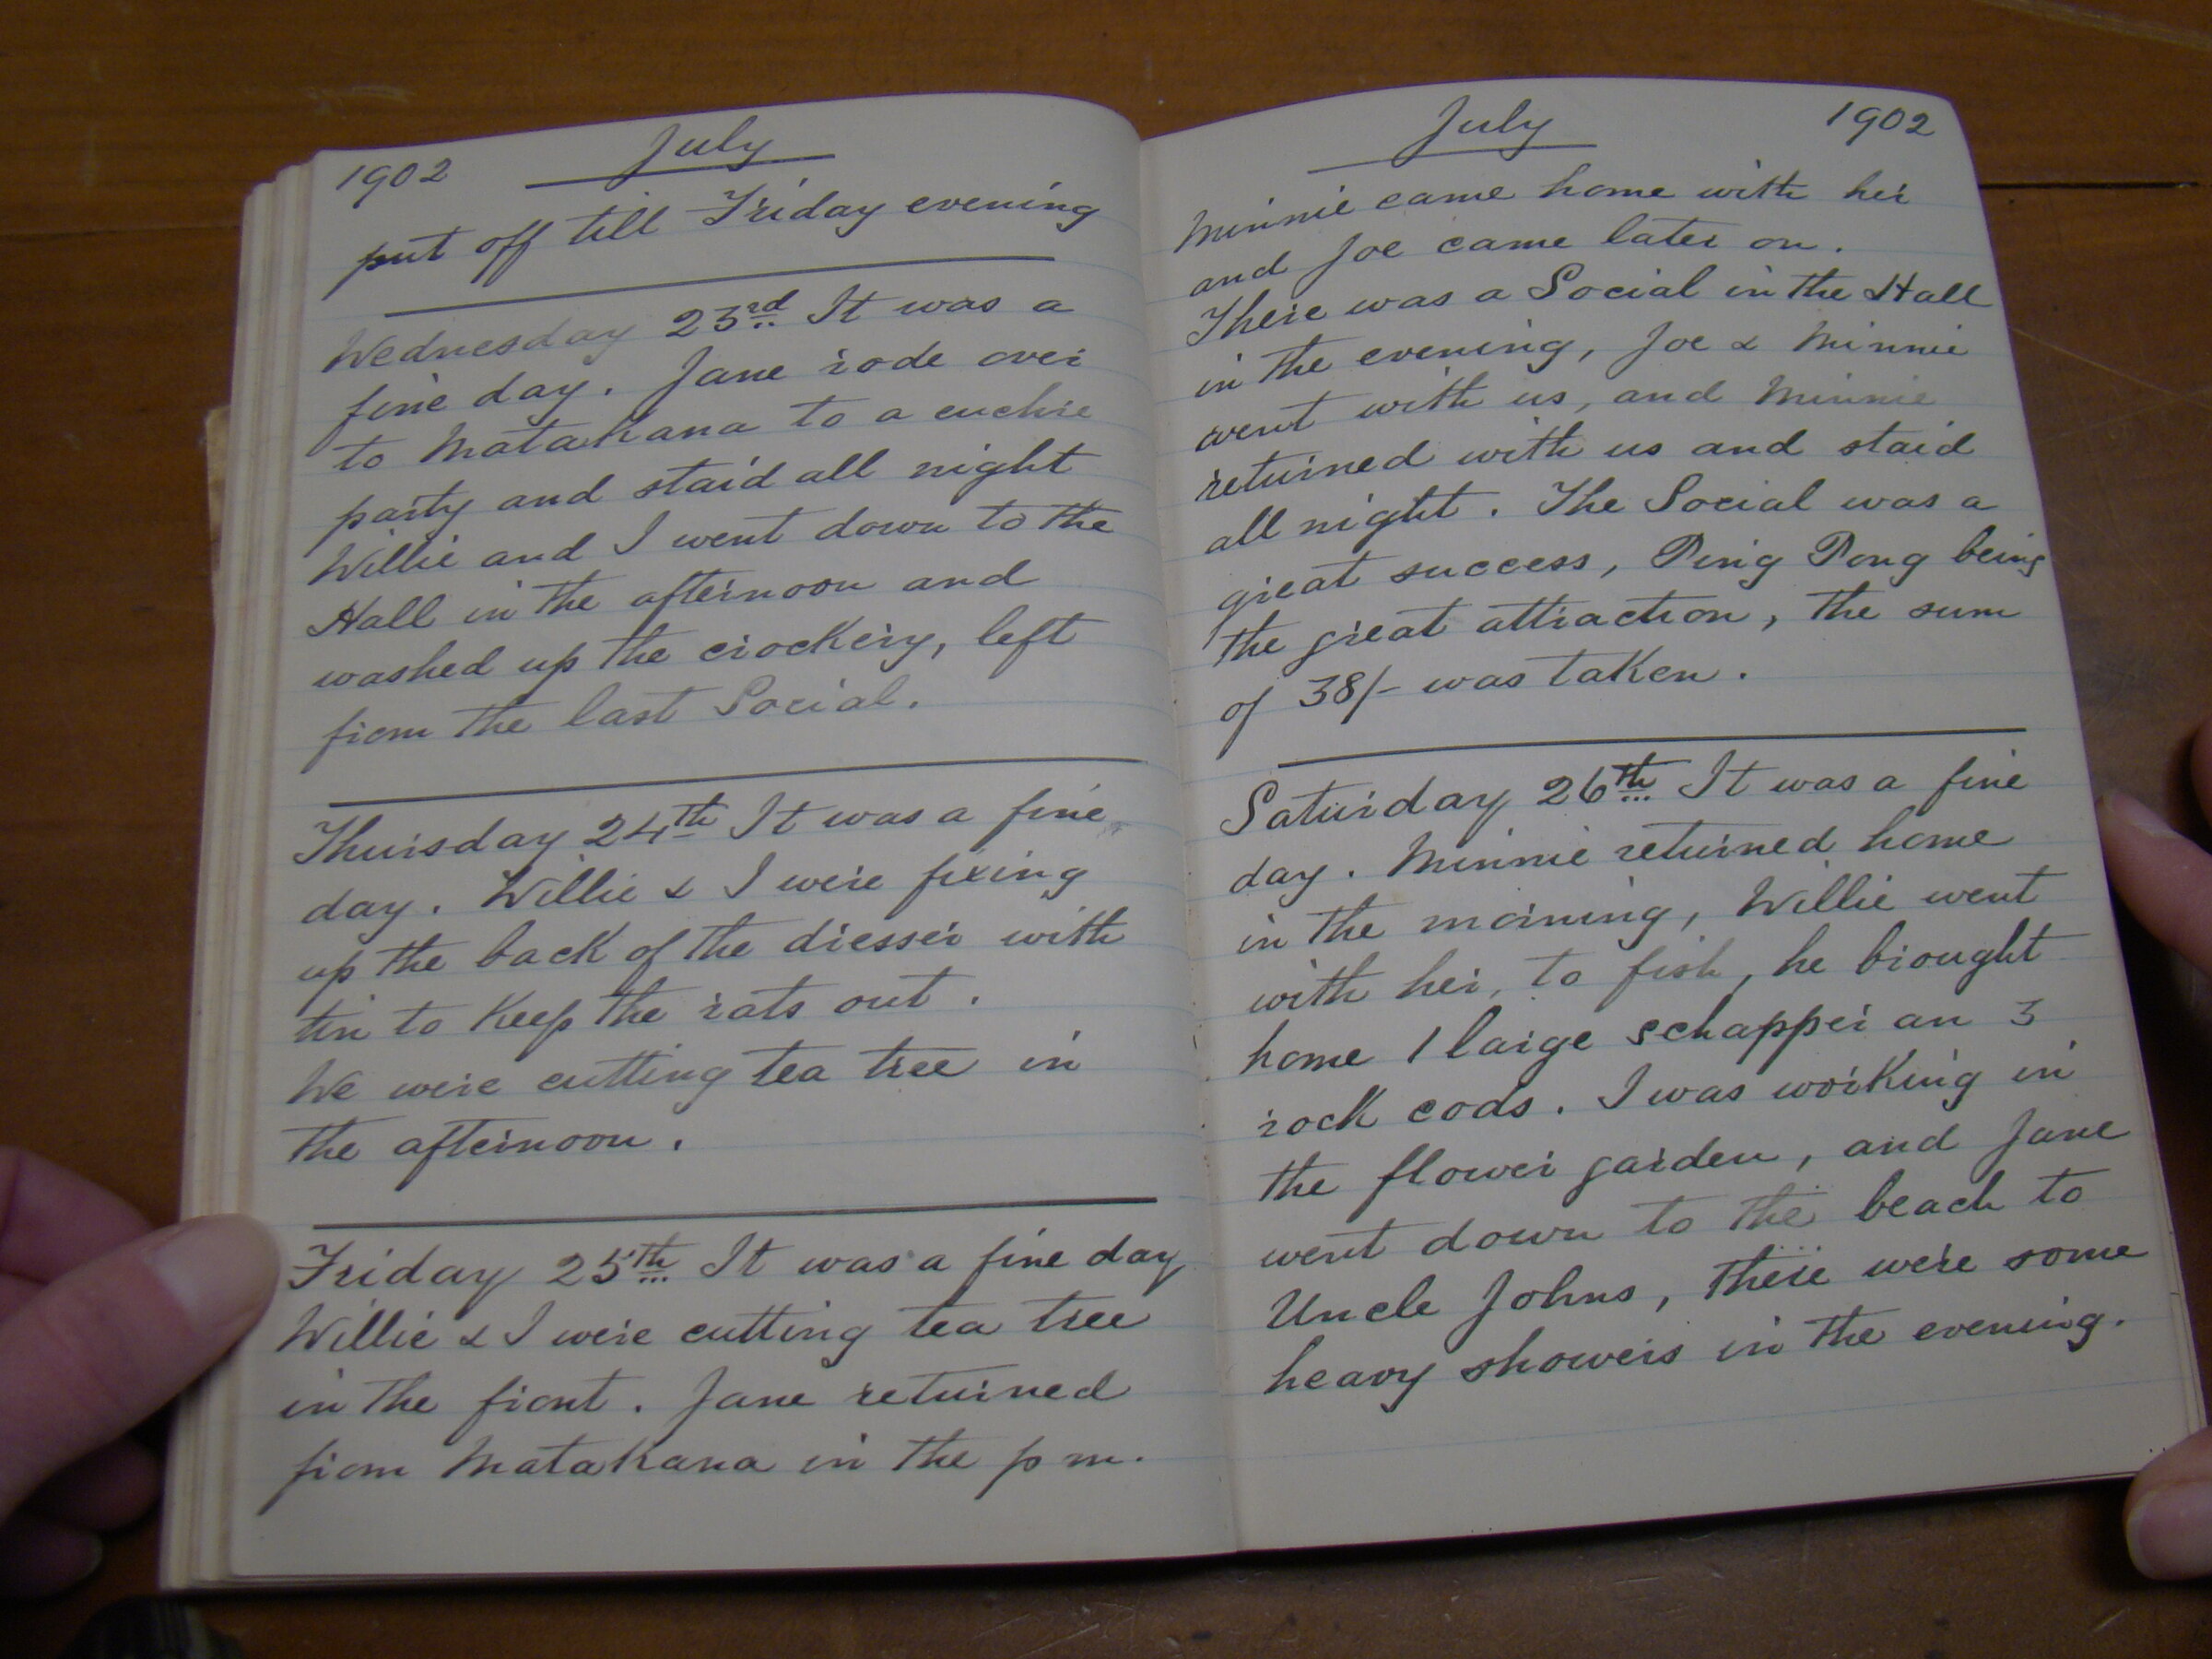 1902 July
put off till Friday evening
Wednesday 23rd It was a
fine day. Jane rode over
to Matakana to a euchre
party and staid all night
Willie and I went down to the
Hall in the afternoon and
washed up the crockery, left
from the last Social.
Thursday 24th It was a fine
day. Willie & I were fixing
up the back of the dresser with
tin to keep the rats out.
We were cutting tea tree in
the afternoon.
Friday 25th It was a fine day
Willie & I were cutting tea tree
in the front. Jane returned
from Matakana in the p m.
July 1902
Minnie came home with her
and Joe came later on.
There was a Social in the Hall
in the evening, Joe & Minnie
went with us, and Minnie
returned with us and staid
all night. The Social was a
great success, Ping Pong being
the great attraction, the sum
of 38/- was taken.
Saturday 26th It was a fine
day. Minnie returned home
in the morning, Willie went
with her, to fish, he brought
home 1 large schapper an 3
rock cods. I was working in
the flower garden, and Jane
went down to the beach to
Uncle Johns, there were some
heavy showers in the evening.